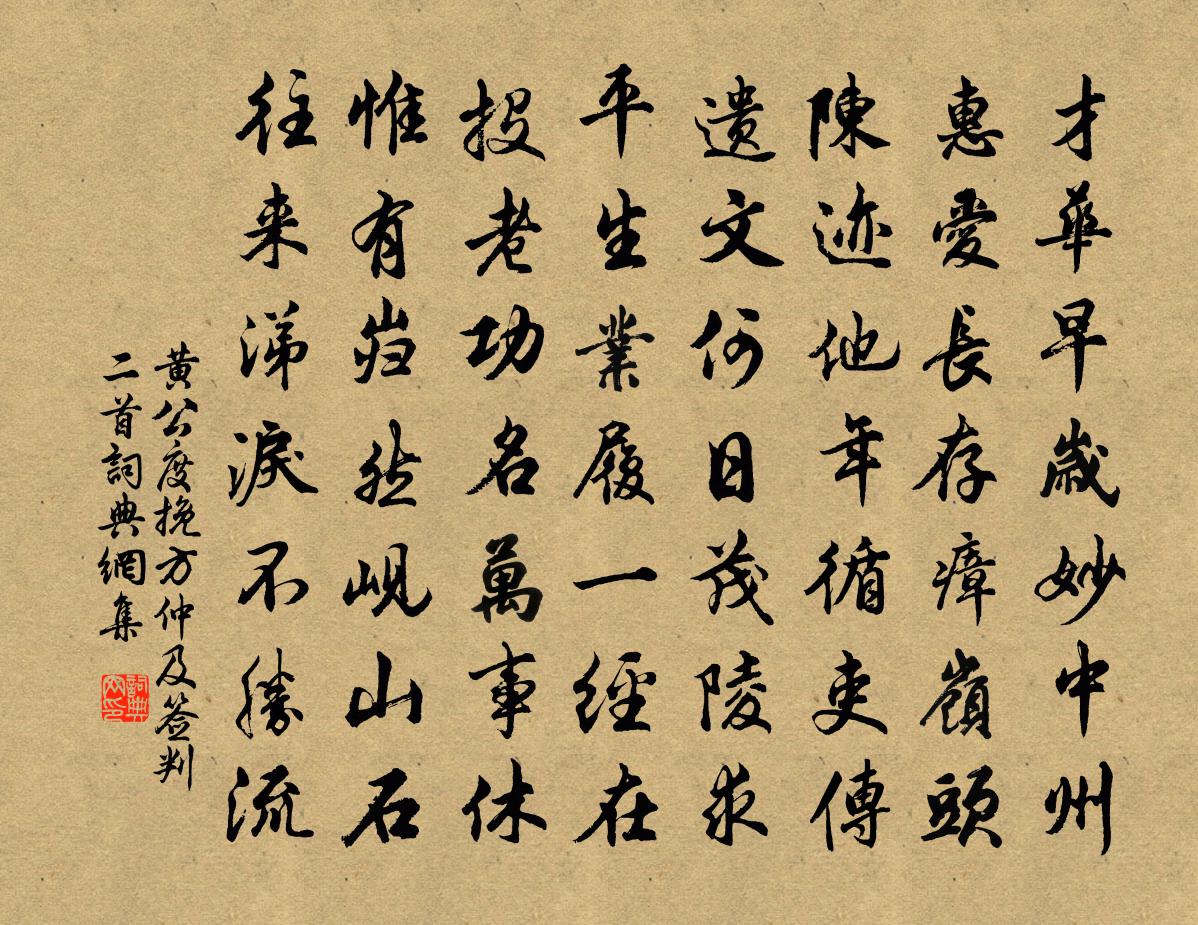 才華早歲妙中州
惠愛長存瘴嶺頭
陳迹他年循吏傳
遺文何日茂陵求
平生業履一經在
投老功名萬事休
惟有岿然峴山石
往来涕淚不勝流
黄公度挽方仲及签判
二首詞典網集
詞典網印